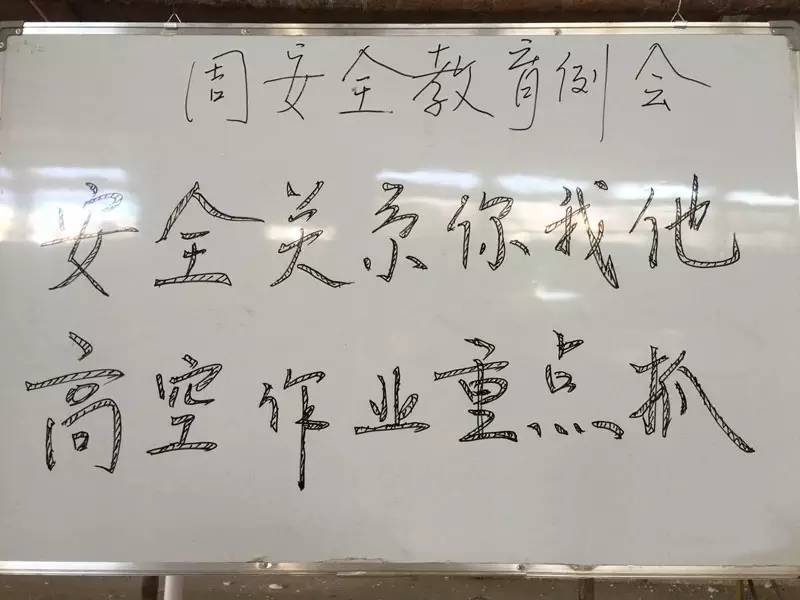 周安全教育例会
安全关系你我他
高空作业重点抓